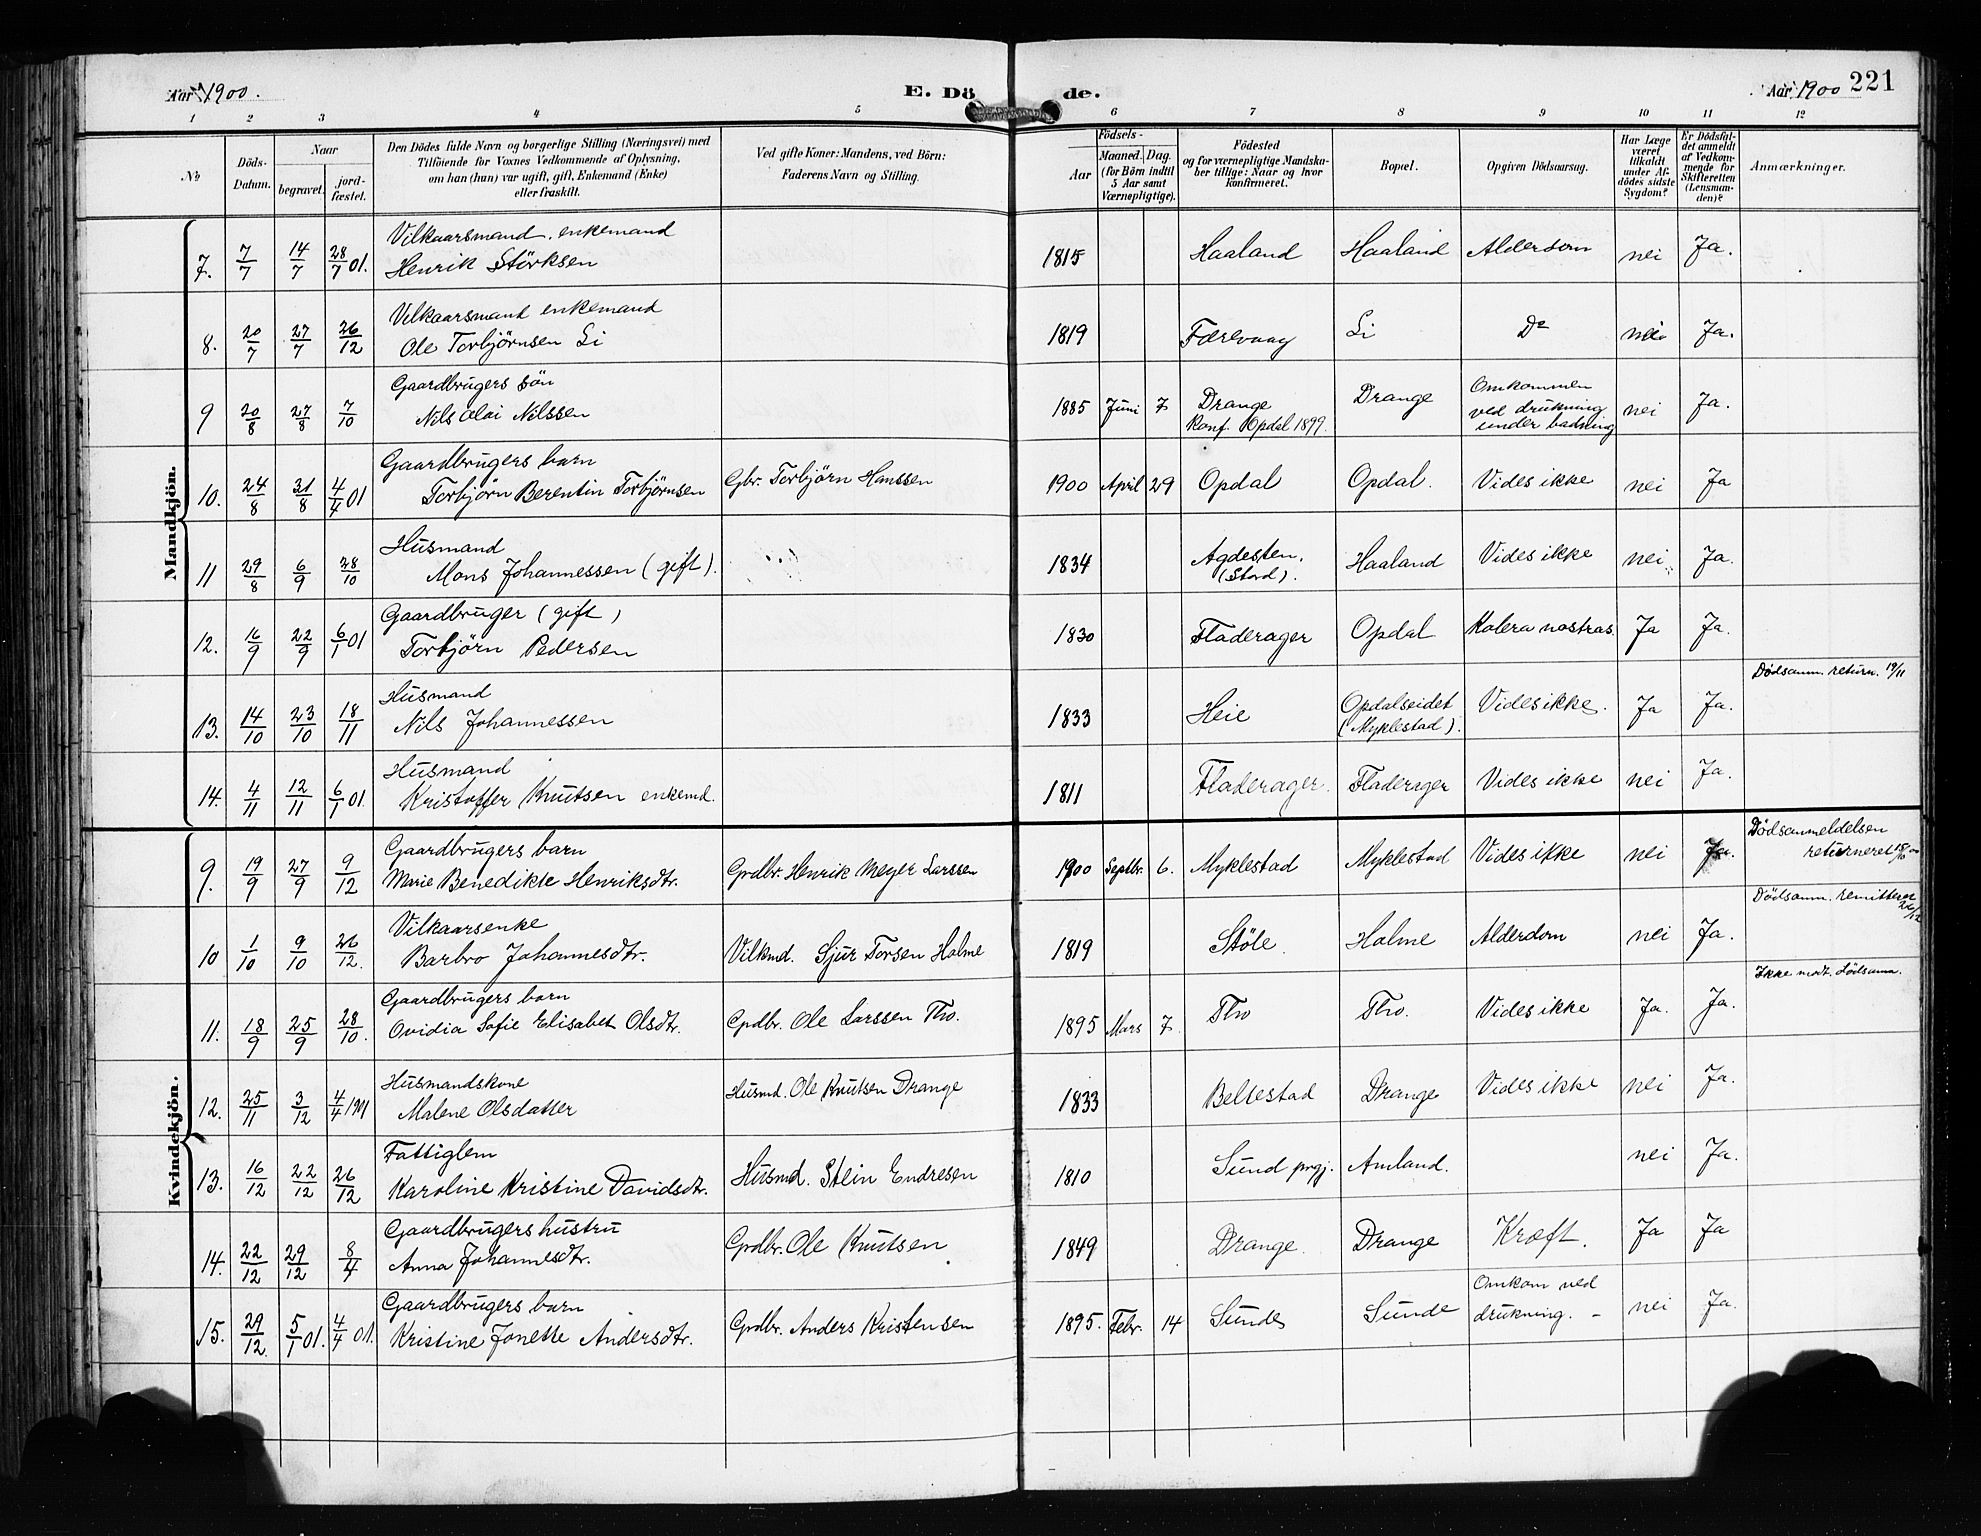 Aar 1900.
E. Dö de.
Aar 1900 221
1 2 3 4 5 6 7 8 9 10 11 12
No
Döds-Datum.
Naar
begravet.
jord-fæstet.
Den Dödes fulde Navn og borgerlige Stilling (Næringsvei) med
Tilföiende for Voxnes Vedkommende af Oplysning,
om han (hun) var ugift, gift, Enkemand (Enke)
eller fraskilt.
Ved gifte Koner: Mandens, ved Börn:
Faderens Navn og Stilling.
Födsels-
Aar
Maaned. Dag.
(for Börn indtil
5 Aar samt
Værnepligtige).
Födested
og for værnepligtige Mandska-
ber tillige: Naar og hvor
konfirmeret.
Bopæl.
Opgiven Dödsaarsag.
Har Læge
været
tilkaldt
under Af-
dödes sidste
Sygdom?
Er Dödsfal-
det anmeldt
af Vedkom-
mende for
Skifteretten
(Lensman-
den)?
Anmærkninger.
Mandkjön.
7. 7/7 14/7 28/7 01. Vilkaarsmand, enkemand
Henrik Störksen 1815 Haaland Haaland Aldersom nei Ja.
8. 20/7 27/7 26/12 Vilkaarsmand enkemand
Ole Torbjörnsen Li 1819 Færevaag Li Do nei Ja.
9 20/8 27/8 7/10 Gaardbrugers sön
Nils Olai Nilssen 1885 Juni 7 Drange
Konf. Opdal 1899. Drange Omkommen
ved drukning
under badning nei Ja.
10. 24/8 31/8 4/4 01 Gaardbrugers barn
Torbjörn Berentin Torbjörnsen Gbr. Torbjörn Hanssen 1900 April 29 Opdal Opdal. Vides ikke nei Ja
11 29/8 6/9 28/10 Husmand
Mons Johannessen (gift). 1834 Agdesten.
(Stord). Haaland Vides ikke nei Ja.
12. 16/9 22/9 6/1 01 Gaardbruger (gift)
Torbjörn Pedersen 1830 Fladerager Opdal Kolera nostras. Ja Ja.
13. 14/10 23/10 18/11 Husmand
Nils Johannessen 1833 Heie Opdalseidet
(Myklestad). Vides ikke. Ja Ja. Dödsanm. return. 19/11
14. 4/11 12/11 6/1 01. Husmand
Kristoffer Knutsen enkemd. 1811 Fladerager. Fladerager Vides ikke nei Ja.
Kvindekjön.
9. 19/9 27/9 9/12 Gaardbrugers barn
Marie Benedikte Henriksdtr. Grdbr. Henrik Meyer Larssen 1900 Septbr. 6. Myklestad Myklestad Vides ikke nei Ja. Dödsanmeldelsen
returneret 15/10 00
10 1/10 9/10 26/12. Vilkaarsenke
Barbro Johannesdtr. Vilkmd. Sjur Torsen Holme 1819 Stöle. Holme Alderdom nei Ja. Dödsanm. remitteret 26/12
11. 18/9 25/9 28/10. Gaardbrugers barn
Ovidia Sofie Elisabet Olsdtr. Grdbr. Ole Larssen Tho. 1895 Mars 7. Tho Tho. Vides ikke Ja. Ja. Ikke modt. dödsanm.
12. 25/11 3/12 4/4 1901 Husmandskone
Malene Olsdatter Husmd. Ole Knutsen Drange 1833 Beltestad Drange Vides ikke nei Ja.
13. 16/12 22/12 26/12 Fattiglem
Karoline Kristine Davidsdtr. Husmd. Stein Endresen 1810 Sund prgj. Amland. nei Ja.
14. 22/12 29/12 8/4 Gaardbrugers hustru
Anna Johannesdtr. Grdbr. Ole Knutsen 1849 Drange. Drange Kræft. Ja Ja
15. 29/12. 5/1 01. 4/4 01. Gaardbrugers barn
Kristine Jonette Andersdtr. Grdbr. Anders Kristensen 1895. Febr. 14 Sunde Sunde Omkom ved
drukning. – nei Ja.